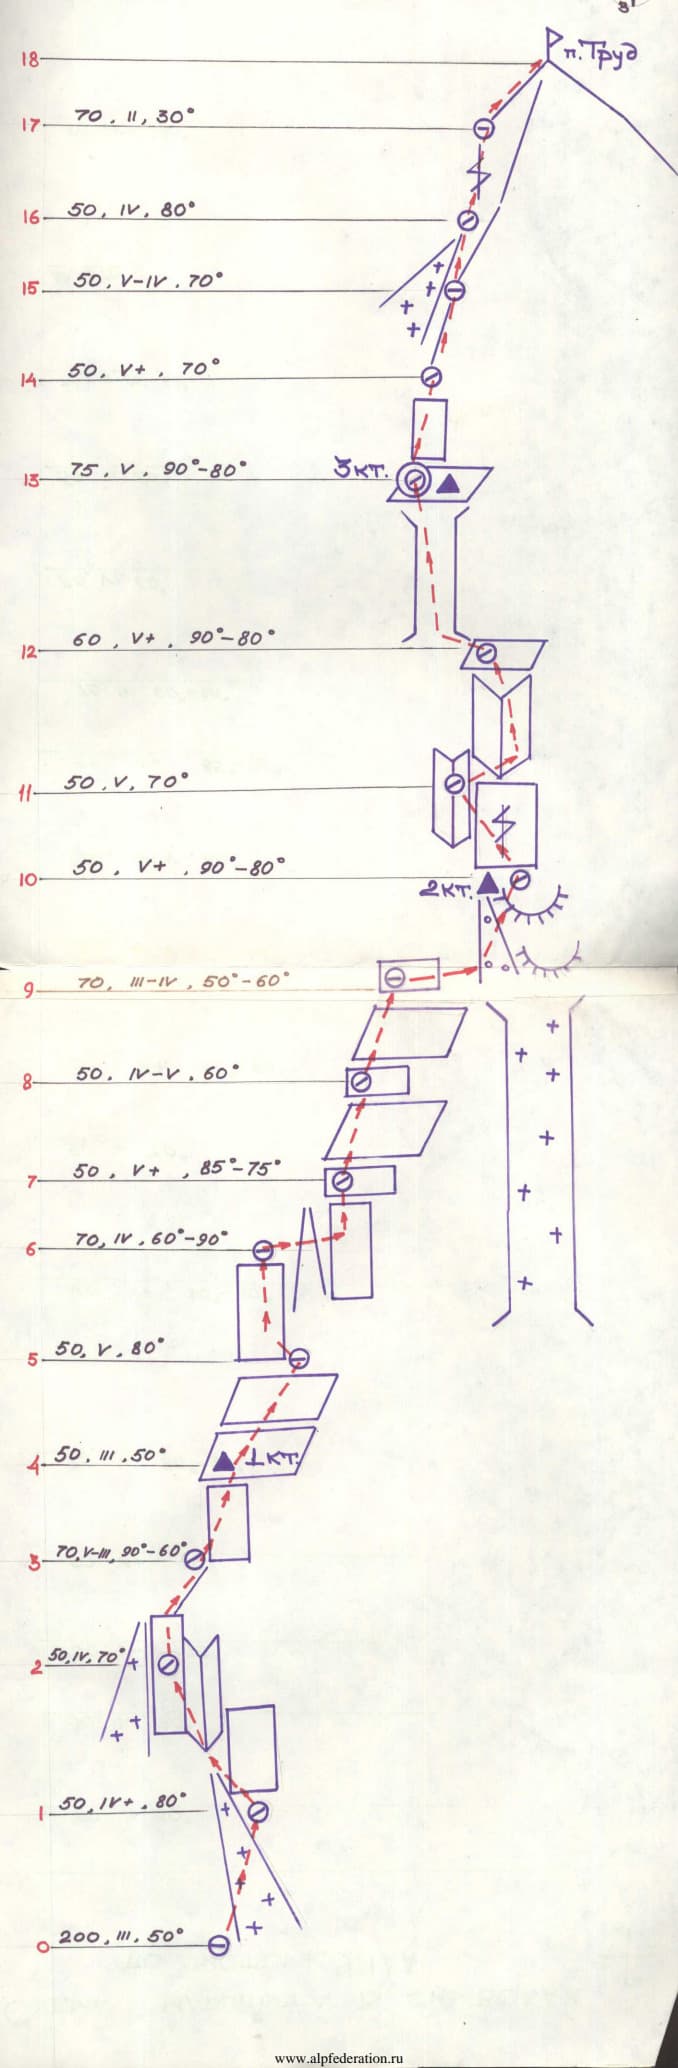 18 п. Труд
70, II, 30°
17
50, IV, 80°
16
50, V-IV, 70°
15
50, V+, 70°
14
75, V, 90°-80° 3 кт.
13
60, V+, 90°-80°
12
50, V, 70°
11
50, V+, 90°-80°
10 2 кт.
70, III-IV, 50°-60°
9
50, IV-V, 60°
8
50, V+, 85°-75°
7
70, IV, 60°-90°
6
50, V, 80°
5
50, III, 50° 1 кт.
4
70, V-III, 90°-60°
3
50, IV, 70°
2
50, IV+, 80°
1
200, III, 50°
0
www.alpfederation.ru